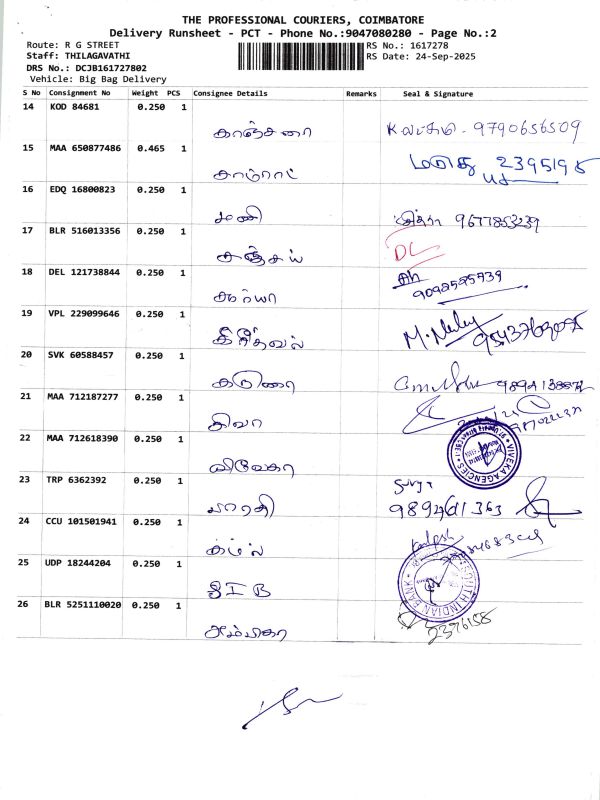 THE PROFESSIONAL COURIERS, COIMBATORE
Delivery Runsheet - PCT - Phone No.:9047080280 - Page No.:2
Route: R G STREET RS No.: 1617278
Staff: THILAGAVATHI RS Date: 24-Sep-2025
DRS No.: DCJB161727802
Vehicle: Big Bag Delivery
S No Consignment No Weight PCS Consignee Details Remarks Seal & Signature
14 KOD 84681 0.250 1
காஞ்சனா 9790656509
15 MAA 650877486 0.465 1
சாம்ராட் 2395198
16 EDQ 16800823 0.250 1
மணி 9677853239
17 BLR 516013356 0.250 1
சஞ்சய் DL
18 DEL 121738844 0.250 1
9092525939
19 VPL 229099646 0.250 1
20 SVK 60588457 0.250 1
கருணா
21 MAA 712187277 0.250 1
சிவா
22 MAA 712618390 0.250 1
விவேகா VIVEKA AGENCIES
23 TRP 6362392 0.250 1
பாரதி Surya
24 CCU 101501941 0.250 1
கமல் Kalpesh
25 UDP 18244204 0.250 1
SIB SOUTH INDIAN BANK
26 BLR 5251110020 0.250 1
அம்பிகா 2396158